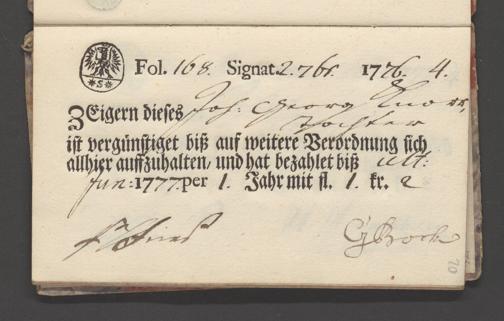 *S*
Fol. 168. Signat. 2. 7br. 1776. 4.
Zeigern dieses Joh: Georg Knorr,
Tochter
ist vergünstiget biß auf weitere Verordnung sich
allhier auffzuhalten, und hat bezahlet biß ult:
Jun: 1777. per 1. Jahr mit fl. 1. kr. 2
20